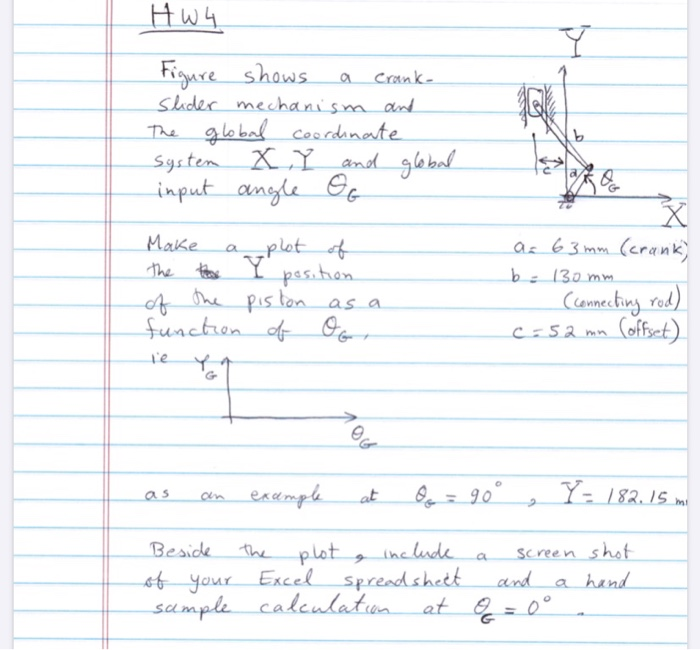 HW4
Figure shows a crank-
slider mechanism and
The global coordinate
system X, Y and global
input angle θG
Y
b
c
a
θG
X
Make a plot of
the Y position
of the piston as a
function of θG,
i'e
YG
θG
a= 63mm (crank)
b = 130 mm
(connecting rod)
c = 52 mm (offset)
as an example at θG = 90°, Y = 182.15 m
Beside the plot, include a screen shot
of your Excel spreadsheet and a hand
sample calculation at θG = 0°.